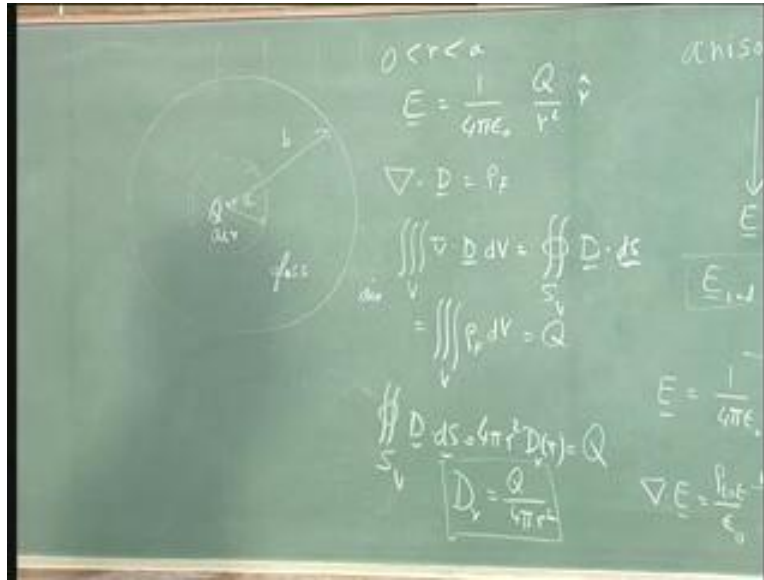 0 < r < a
E = 1/4πε₀ Q/r² r̂
∇ · D = ρ_f
∭_V ∇ · D dV = ∯_{S_V} D · ds
= ∭_V ρ_f dV = Q
∯_{S_V} D ds = 4πr² D_r(r) = Q
D_r = Q/4πr²
b
Q
air
glass
aniso
E
E
E = 1/4πε₀
∇ E = ρ_tot/ε₀